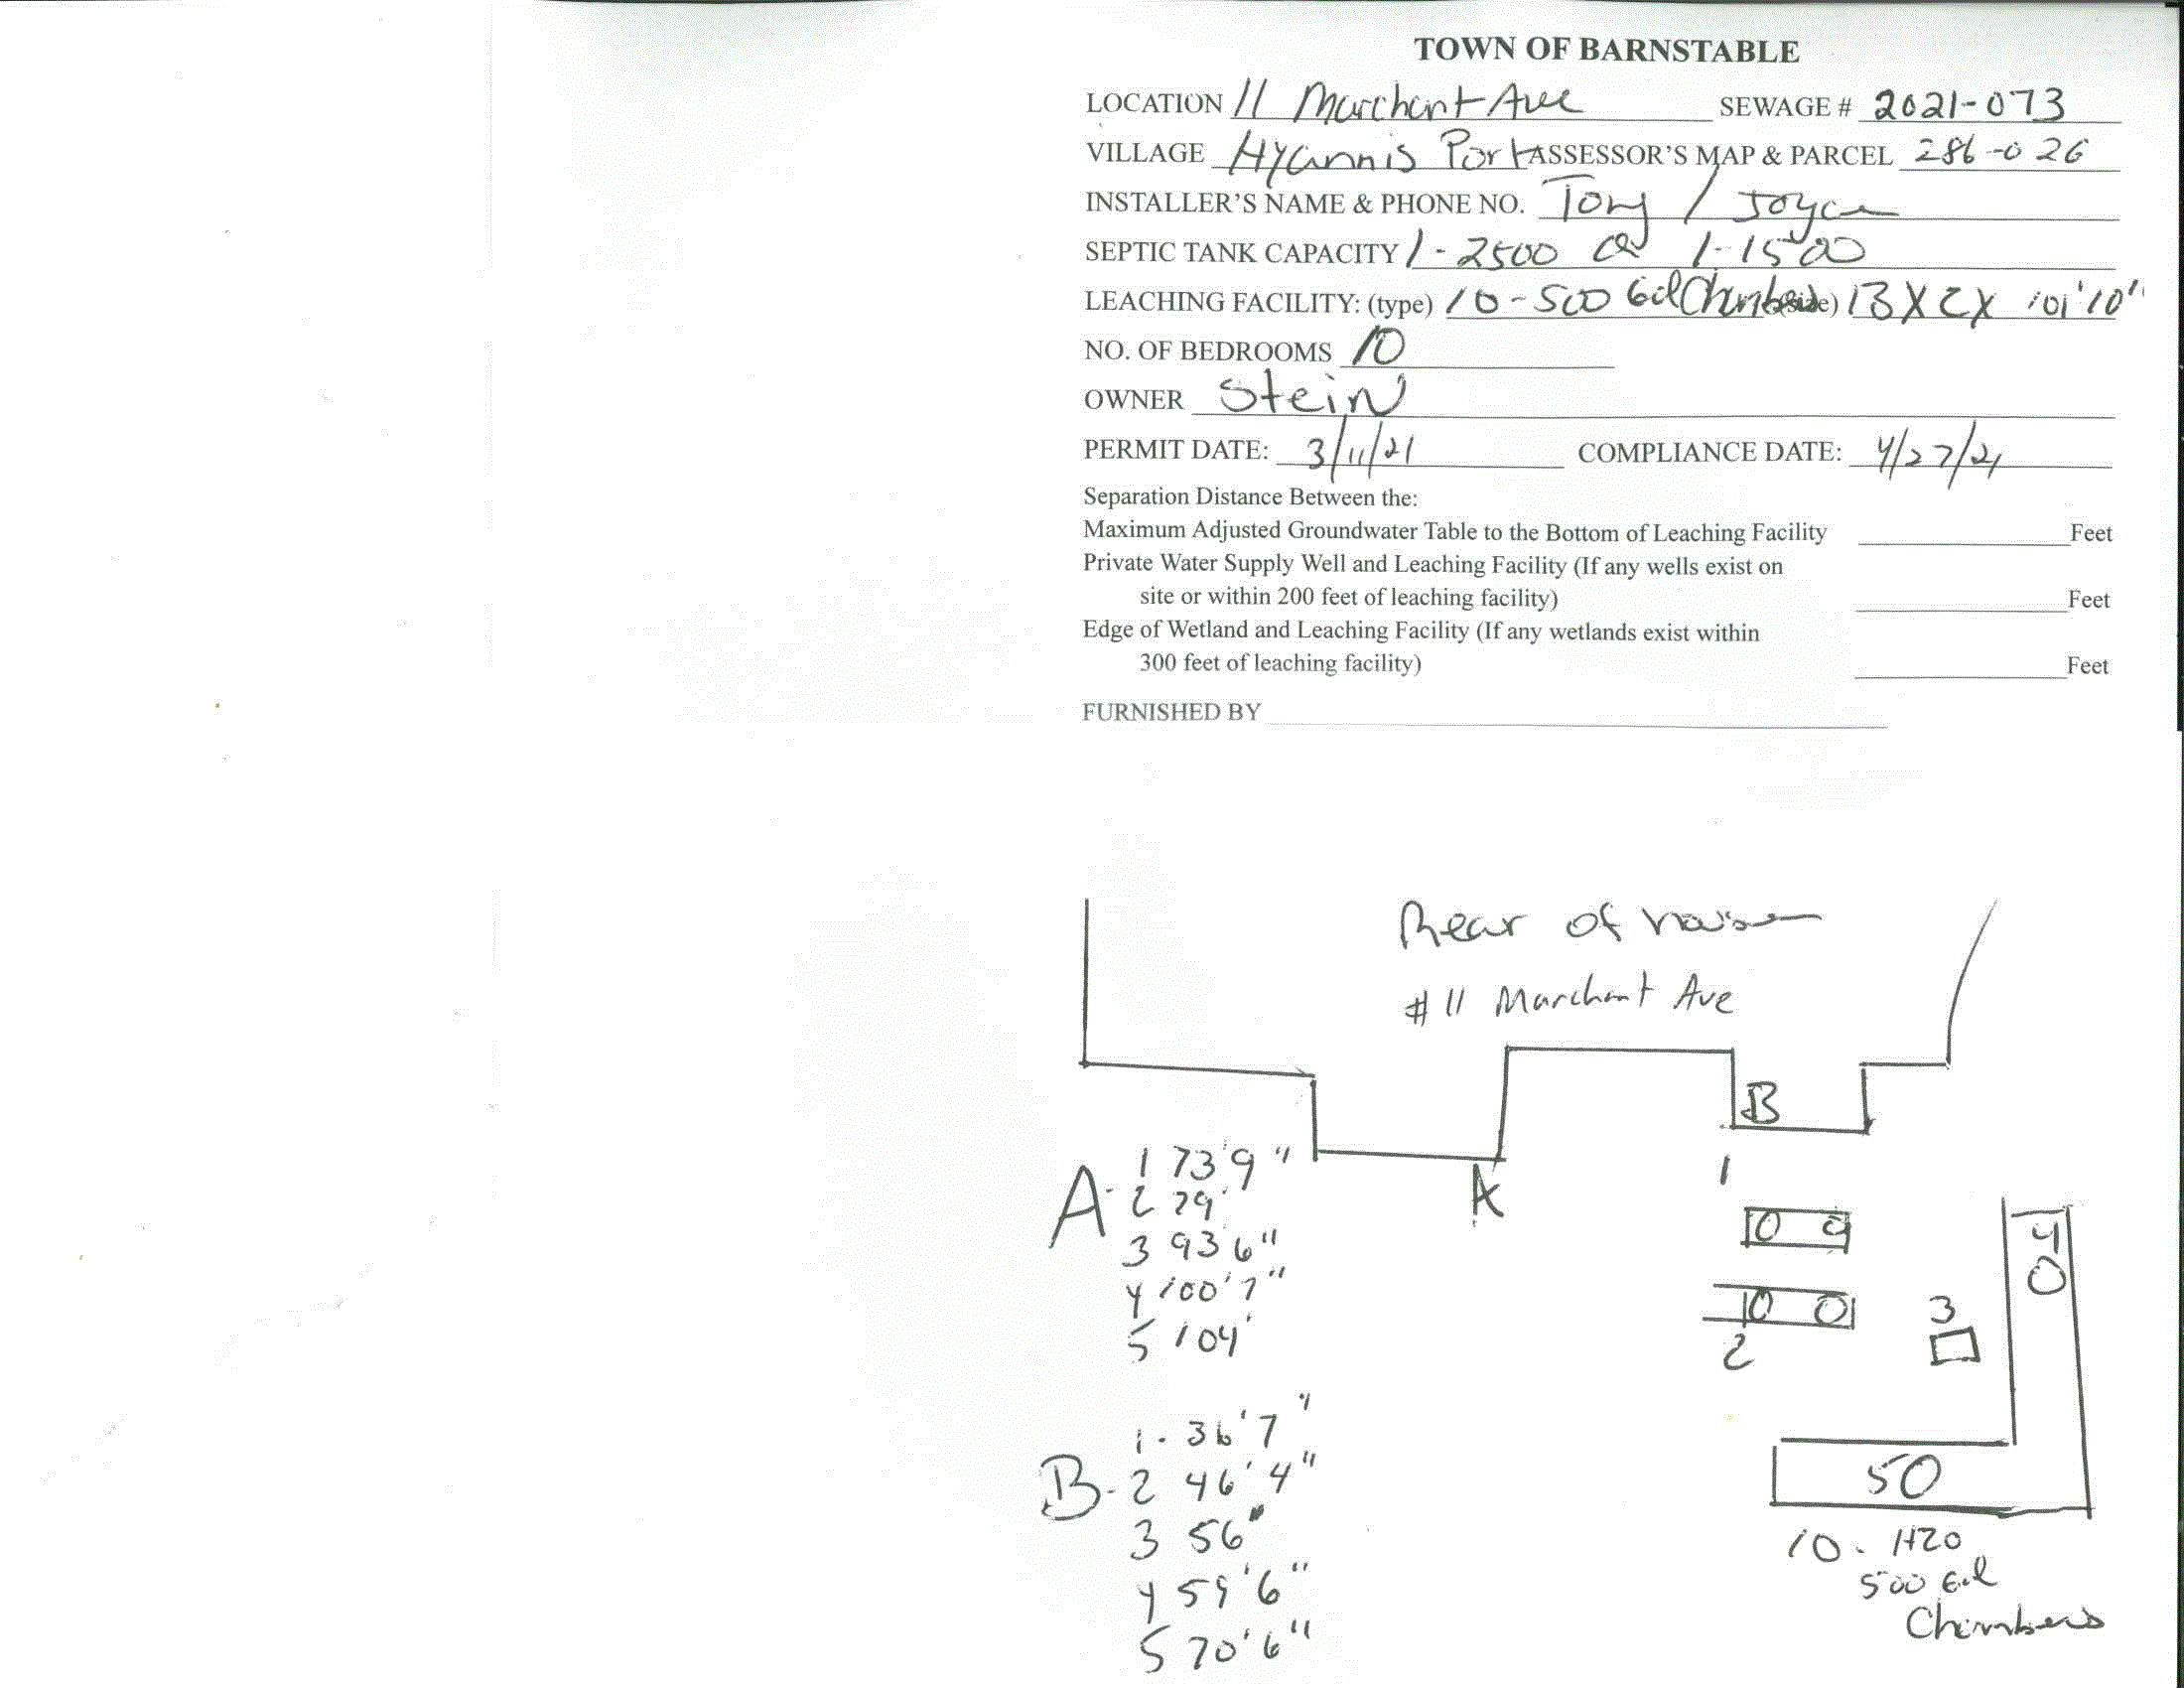 TOWN OF BARNSTABLE
LOCATION 11 Marchant Ave SEWAGE # 2021-073
VILLAGE Hyannis Port ASSESSOR'S MAP & PARCEL 286-026
INSTALLER'S NAME & PHONE NO. Tony / Joyce
SEPTIC TANK CAPACITY 1-2500 1-1500
LEACHING FACILITY: (type) 10-500 Gal Chambers (size) 13 X 2 X 101'10"
NO. OF BEDROOMS 10
OWNER Stein
PERMIT DATE: 3/11/21 COMPLIANCE DATE: 4/27/21
Separation Distance Between the:
Maximum Adjusted Groundwater Table to the Bottom of Leaching Facility Feet
Private Water Supply Well and Leaching Facility (If any wells exist on
site or within 200 feet of leaching facility) Feet
Edge of Wetland and Leaching Facility (If any wetlands exist within
300 feet of leaching facility) Feet
FURNISHED BY
Rear of house
# 11 Marchant Ave
B
A
A- 1 73'9"
2 79'
3 93'6"
4 100'7"
5 104'
1
2
3
4
5
B- 1- 36'7"
2 46'4"
3 56"
4 59'6"
5 70'6"
10- H20
500 Gal
Chambers